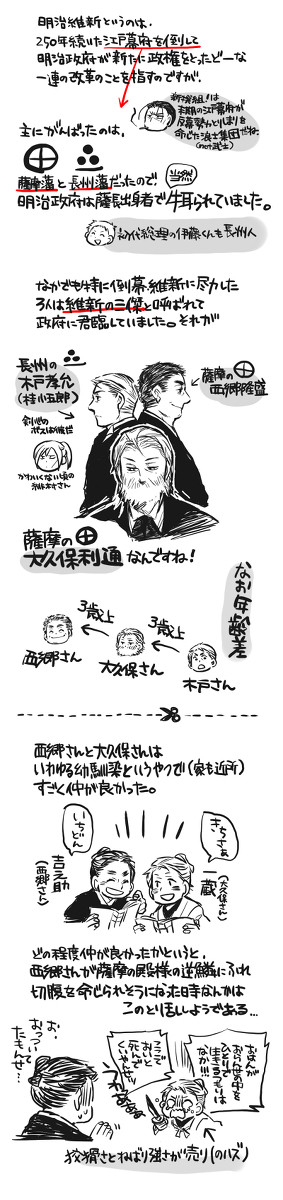 明治維新というのは、
250年続いた江戸幕府を倒して
明治政府が新たに政権をとったどーな
一連の改革のことを指すのですが、
新撰組!は
末期の江戸幕府が
反幕勢力とりしまりを
命じた浪士集団だね。
(not武士)
主にがんばったのは、
薩摩藩と長州藩だったので、
当然
明治政府は薩長出身者で牛耳られていました。
初代総理の伊藤くんも長州人
なかでも特に倒幕・維新に尽力した
3人は維新の三傑と呼ばれて
政府に君臨していました。それが
長州の
木戸孝允
(桂小五郎)
薩摩の
西郷隆盛
剣心の
かわいくない頃の
薩摩の
大久保利通なんですね!
なお年齢差
3歳上
3歳上
西郷さん
大久保さん
木戸さん
西郷さんと大久保さんは
いわゆる幼馴染というやつで(家も近所)
すごく仲が良かった。
きちさぁ
いちどん
一蔵
(大久保さん)
吉之助
(西郷さん)
どの程度仲が良かったかというと、
西郷さんが薩摩の殿様の逆鱗にふれ
切腹を命じられそうになった日時なんかは
このとりみだしようである…
おはんが
おらん世の中を
ひとりで
生きるつもりは
なか!!!
ここで
おいと
死んで
くいやんせ
お、
おっついて
たもんせ…
狡猾さとねばり強さが売り(のハズ)